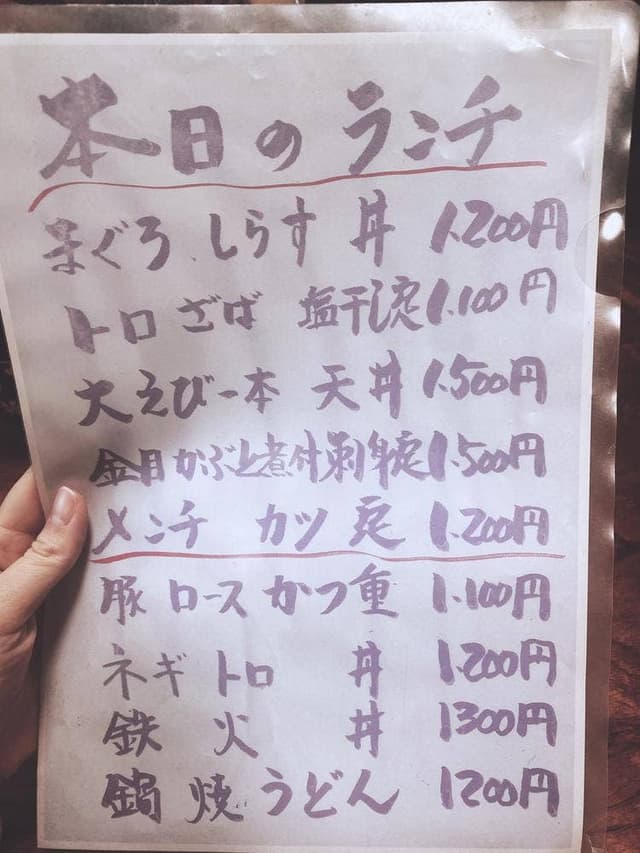 本日のランチ
まぐろ、しらす 丼 1.200円
トロ さば 塩干し定 1.100円
大えび一本 天丼 1.500円
金目かぶと煮付刺身定 1.500円
メンチ カツ 定 1.200円
豚 ロース かつ重 1.100円
ネギ トロ 丼 1.200円
鉄 火 丼 1300円
鍋 焼 うどん 1200円